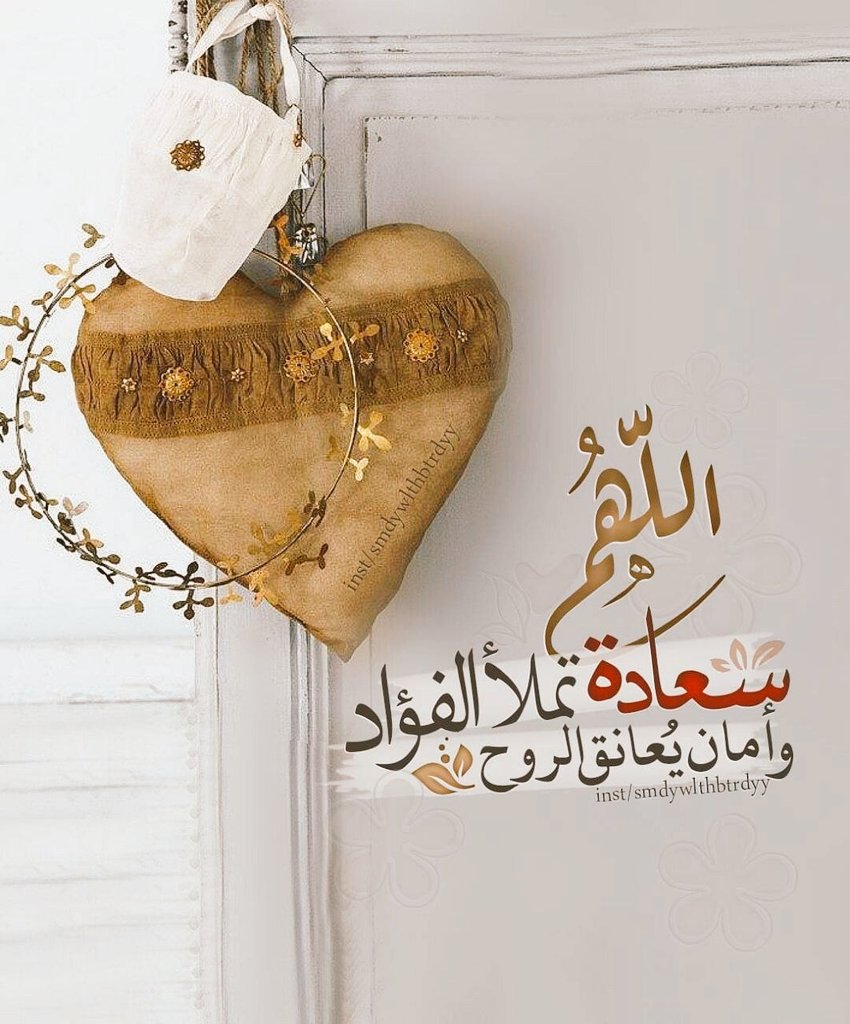 اللّهُم
سعادة تملأ الفؤاد
وأمان يُعانق الروح
inst/smdywlthbtrdyy
inst/smdywlthbtrdyy